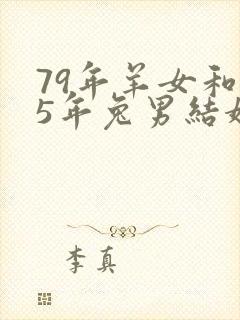 79年羊女和
5年兔男結婚
李真